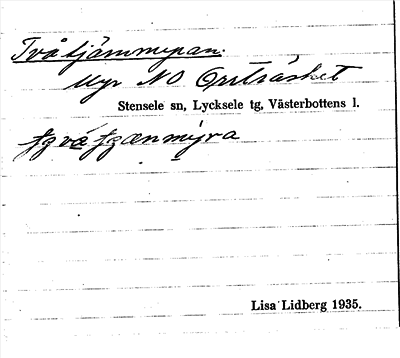 Tvåtjämmyran.
Myr NO Orrträsket
Stensele sn, Lycksele tg, Västerbottens l.
Lisa Lidberg 1935.